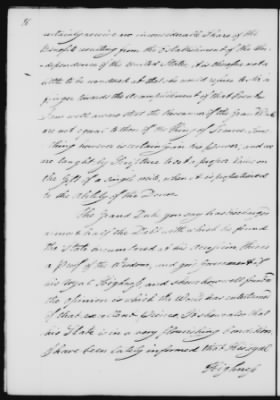 certainly receive no inconsiderable Share of the
Benefit resulting from the Establishment of the In-
dependence of the United States, it is therefore not a
little to be wondered at that he would refuse to the a
finger towards the accomplishment of that Event.
I am well aware that the Revenues of the Grand Duke
are not equal to those of the King of France, Some
thing however is certainly in his power, and we
are taught by Scripture to set a proper Value on
the Gift of a single mite, when it is proportioned
to the Ability of the Donor.
The Grand Duke you say has
a most half the Debt with which he found
the State incumbered at his Accession, there is
a proof of the Wisdom, and good Government of
his royal Highness and shews how well founded
the opinion is which the World has entertained
of that excellent Prince, It shews also that
his State is in a very flourishing Condition
I have been lately informed that his royal
Highness